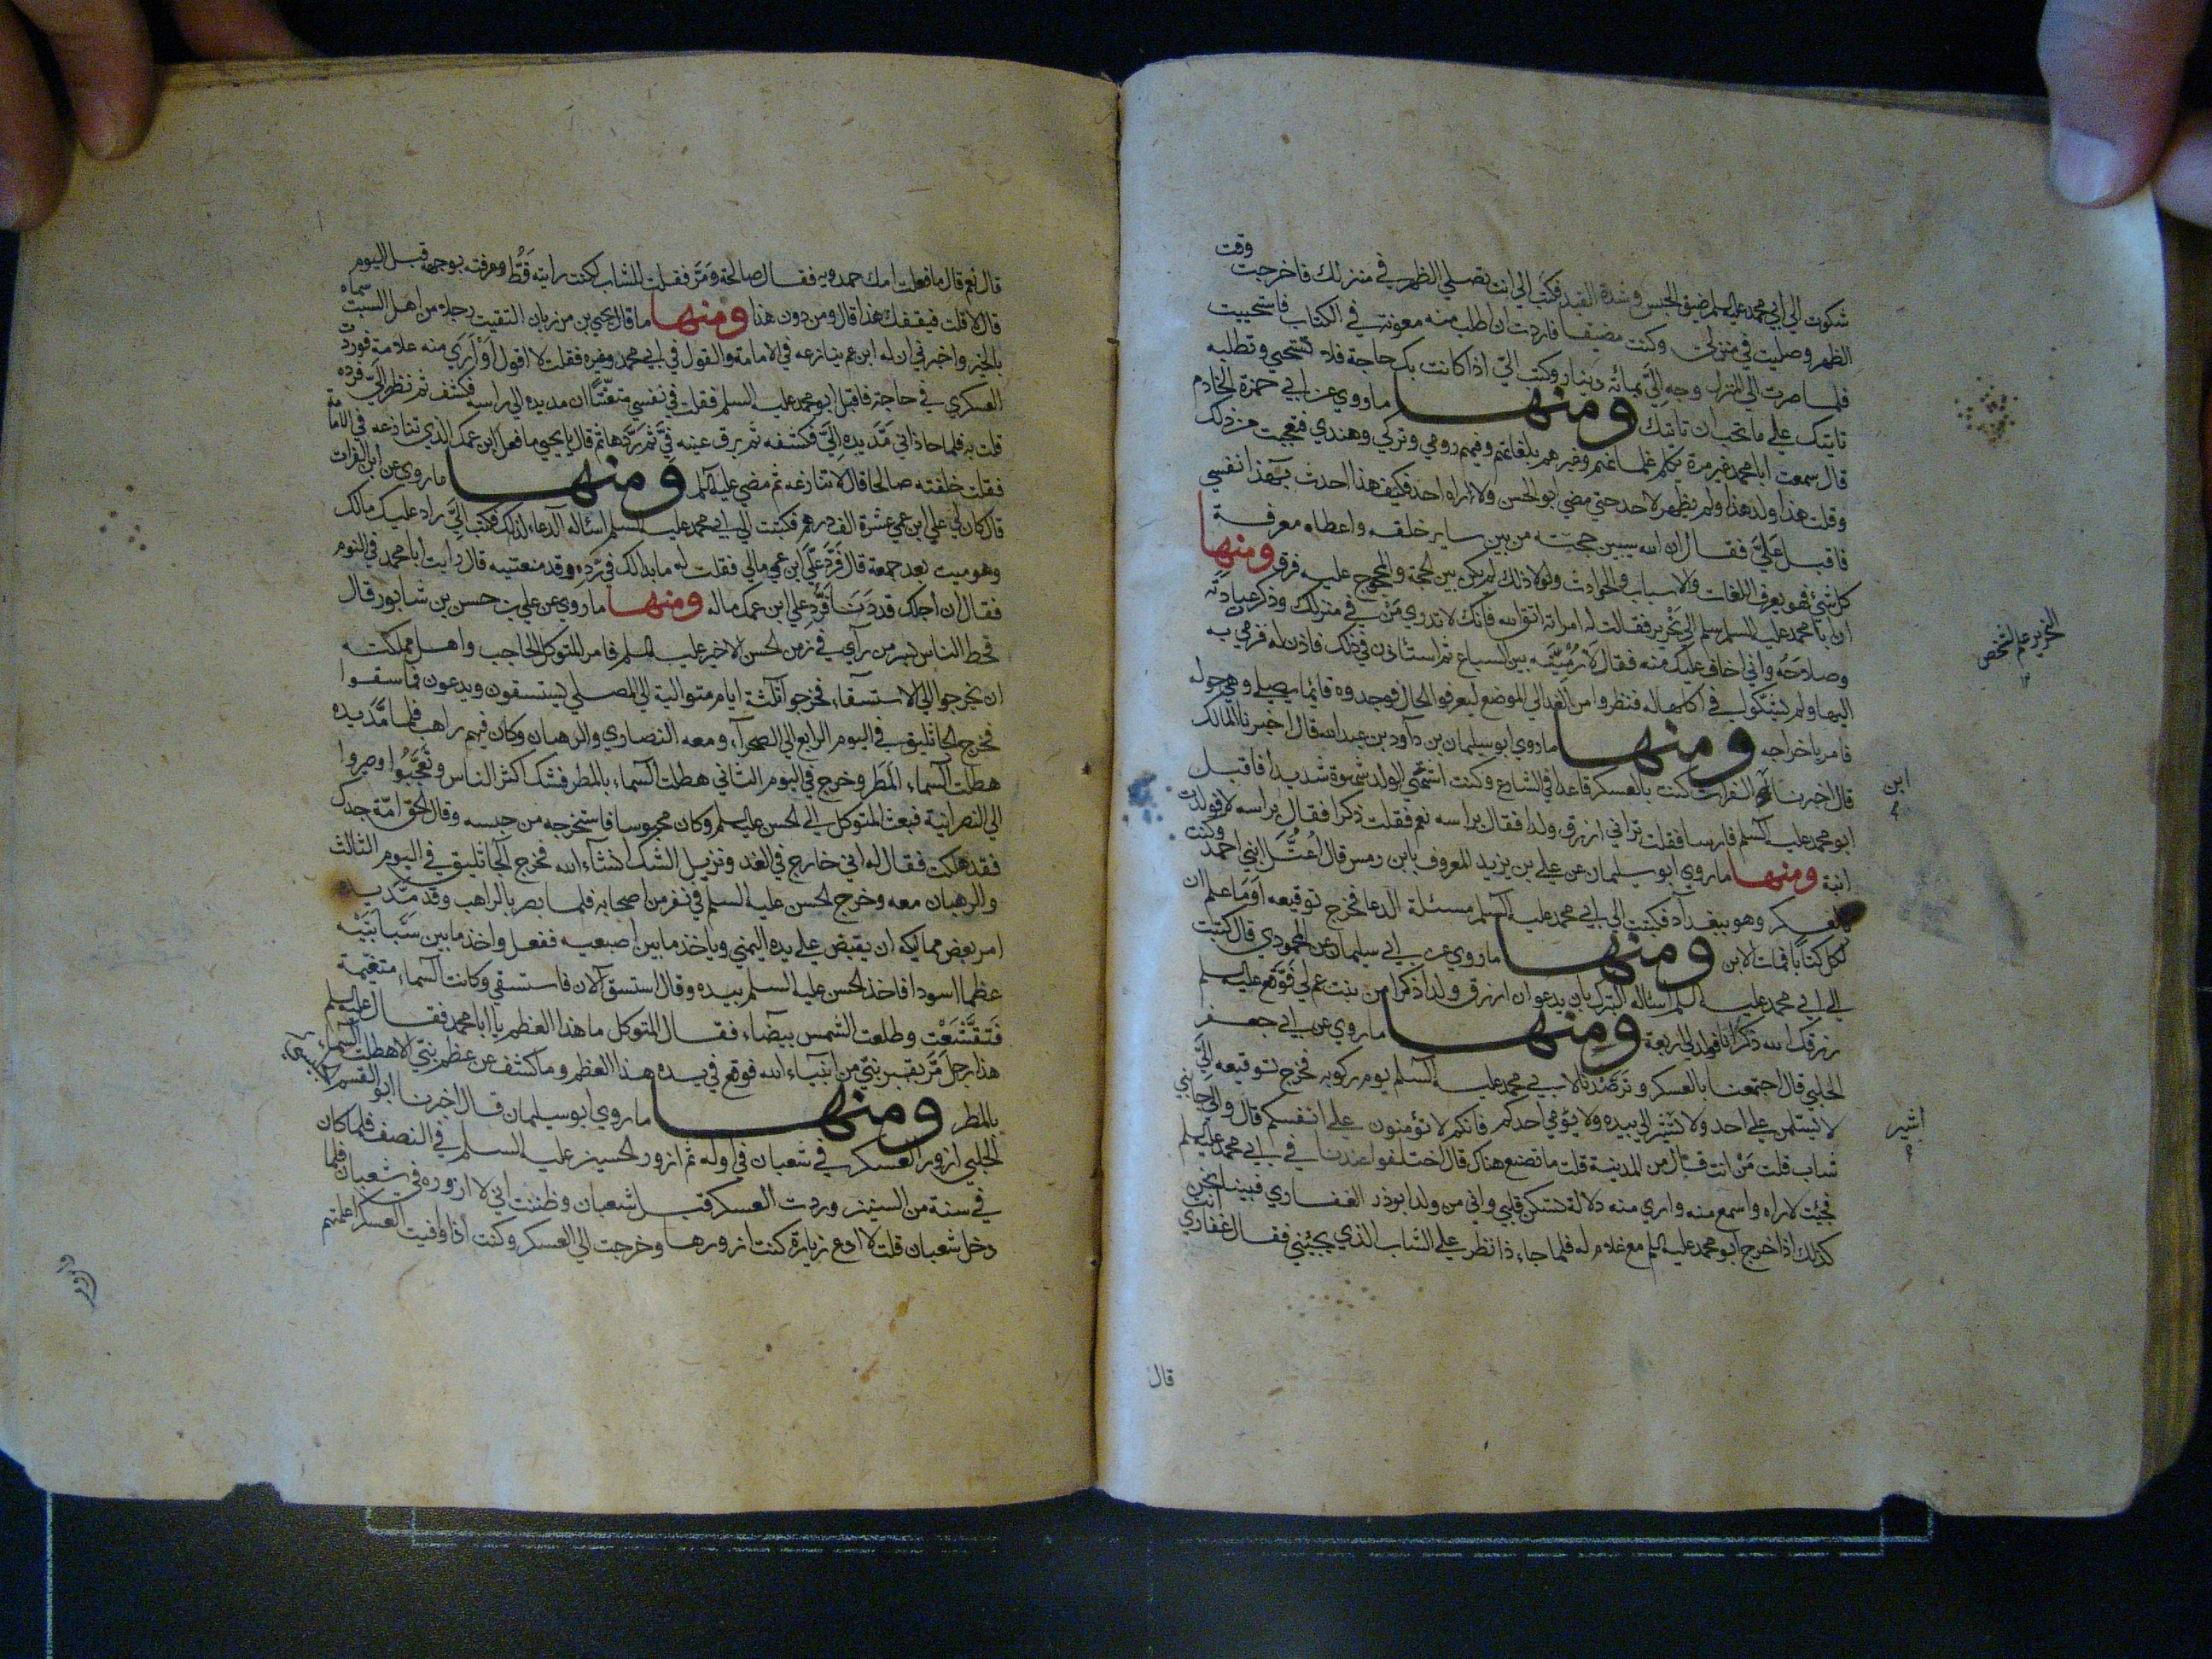 وقت
شكوت الي ابي محمد عليه السلم ضيق الحبس وشدة القيد فكتب الي انت تصلي الظهر في منزلك فاخرجت
الظهر وصليت في منزلي وكنت مضيقا فاردت ان اطلب منه معونة في الكتاب فاستحييت
فلما صرت الي المنزل وجه الَيَّ بمائة دينار وكتب اليّ اذا كانت بك حاجة فلا تستحيي وتطلبه
تاتيك علي ما تحب ان تاتيك ومنها ما روي عن ابي حمزة الخادم
قال سمعت ابا محمد غير مرة يكلم غلمانهم وغيرهم بلغاتهم وفيهم رومي وتركي وهندي فتعجبت من ذلك
وقلت هذا ولد هذا ولم يظهر لاحد حتي مضي ابو الحسن ولا راه احد فكيف هذا احدث بهذا نفسي
فاقبل عَلَيَّ فقال ان الله سيبين حجته من بين ساير خلقه واعطاه معرفة
كل شئ فهو يعرف اللغات والاسباب والحوادث ولولا ذلك لم يكن بين الحجة والمحجوج عليه فرق ومنها
ان ابا محمد عليه السلم سلم الي نحرير فقالت له امراته اتق الله فانك لا تدري مَنْ في منزلك وذكر عبادته
وصلاحَهُ واني اخاف عليك منه فقال لارمينّه بين السباع ثم استاذن في ذلك فاذن له فرمي به
اليها ولم يشكوا في اكلها له فنظروا من الغد الي الموضع ليعرفوا الحال فوجدوه قايما يصلي وهي حوله
فامر باخراجه ومنها ما روي ابو سليمان بن داود بن عبد الله قال اخبرنا المالك
قال اخبرنا الفرات كنت بالعسكر قاعدا في الشارع وكنت اشتهي الولد شهوة شديدا فاقبل
ابو محمد عليه السلم فارسا فقلت تراني ارزق ولدا فقال براسه نعم فقلت ذكرا فقال براسه لا فولدت
ابنة ومنها ما روي ابو سليمان عن علي بن يزيد المعروف بابن رمس قال اعتلّ ابني احمد وكنت
بالعسكر وهو ببغداد فكتبت الي ابي محمد عليه السلم مسئلة الدعا فخرج توقيعه اَوَمَا علم ان
لكل كتابا فمات الابن ومنها ما روي عن ابي سليمان عن المحمودي قال كتبت
الي ابي محمد عليه السلم اساله التبرك بان يدعو ان ارزق ولدا ذكرا من بنت عم لي فوقع عليه السلم
رزقك الله ذكرانا فولد لي اربعة ومنها ما روي عن ابي جعفر
الحلبي قال اجتمعنا بالعسكر وترصدنا لابي محمد عليه السلم يوم ركوبه فخرج توقيعه الَيَّ
لا يسلمن علي احد ولا يشر الي بيده ولا يؤمي احدكم فانكم لا تؤمنون علي انفسكم قال والي جانبي
شاب قلت مَنْ انت قال من المدينة قلت ما تصنع هناك قال اختلفوا عندنا في ابي محمد عليه السلم
فجئت لاراه واسمع منه واري منه دلالة لتسكن قلبي واني من ولد ابو ذر الغفاري فبينا نحن
كذلك اذا خرج ابو محمد عليه السلم مع غلام له فلما حاذانا نظر علي الشاب الذي بجنبي فقال اغفاري انت
قال
ابن
اشير
قال نعم قال ما فعلت امك حمدويه فقال صالحة ومَرّ فقلت للشاب كنت رايته قَطُّ وعرفته بوجهه قبل اليوم
قال لا قلت فيقنعك هذا قال ومن دون هذا ومنها ما قال يحيي بن مرزبان التقيت رجلا من اهل السبت سماه
بالخير واخبرني ان له ابن عم ينازعه في الامامة والقول في ابي محمد وغيره فقلت لا اقول اَوْ اري منه علامة فوردت
العسكري في حاجة فاقبل ابو محمد عليه السلم فقلت في نفسي متعنتا ان مد يده الي راسه فكشف ثم نظر اليّ فرده
قلت به فلما حاذاني مَدّ يده الَيَّ فكشفه ثم برق عينيه فيَّ ثم رَدّها ثم قال يا يحيي ما فعل ابن عمك الذي تنازعه في الامامة
فقلت خلفته صالحا قال لا تنازعه ثم مضي عليه السلم ومنها ما روي عن ابن الفرات
قال كان لي علي ابن عمي عشرة الف درهم فكتبت الي ابي محمد عليه السلم اساله الدعاء لذلك فكتب الَيَّ راد عليك مالك
وهو ميت بعد جمعة قال فَرَدَّ عليّ ابن عمي مالي فقلت له ما بدا لك في رَدّه وقد منعتنيه قال رايت ابا محمد في النوم
فقال ان اجلك قد دَنَا فَرُدّ علي ابن عمك ماله ومنها ما روي عن علي بن حسن بن شابور قال
قحط الناس بسر من رآي في زمن الحسن الاخير عليه السلم فامر المتوكل الحاجب واهل مملكته
ان يخرجوا الي الاستسقاء فخرجوا ثلثة ايام متوالية الي المصلي ليستسقون ويدعون فما سقوا
فخرج الجاثليق في اليوم الرابع الي الصحراء ومعه النصاري والرهبان وكان فيهم راهب فلما مَدّ يده
هطلت السماء المَطَر وخرج في اليوم الثاني هطلت السماء بالمطر فشك اكثر الناس وتَعَجَّبُوا وصبوا
الي النصرانية فبعث المتوكل الي الحسن عليه السلم وكان محبوسا فاستخرجه من حبسه وقال الحق امّة جدك
فقد هلكت فقال له اني خارج في الغد ومزيل الشك انشاء الله فخرج الجاثليق في اليوم الثالث
والرهبان معه وخرج الحسن عليه السلم في نفر من اصحابه فلما بصر بالراهب وقد مَدّ يده
امر بعض مماليكه ان يقبض علي يده اليمني وياخذ ما بين اصبعيه ففعل واخذ ما بين سَبَّابَتَيْه
عظما اسودا فاخذ الحسن عليه السلم بيده وقال استسق الان فاستسقي وكانت السماء متغيمة
فَتَقَشَّعَتْ وطلعت الشمس بيضاء فقال المتوكل ما هذا العظم يا ابا محمد فقال عليه السلم
هذا رجل مَرَّ بقبر نبيّ من انبياء الله فوقع في يده هذا العظم وما كشف عن عظم نبيّ الا هطلت السماء
بالمطر ومنها ما روي ابو سليمان قال اخبرنا ابو القسم
الحلبي ازور العسكر في شعبان في اوله ثم ازور الحسين عليه السلم في النصف فلما كان
في سنة من السنين وردت العسكر قبل شعبان وظننت اني لا ازوره في شعبان فلما
دخل شعبان قلت لا ادع زيارة كنت ازورها وخرجت الي العسكر وكنت اذا وافيت العسكر اعلمتهم